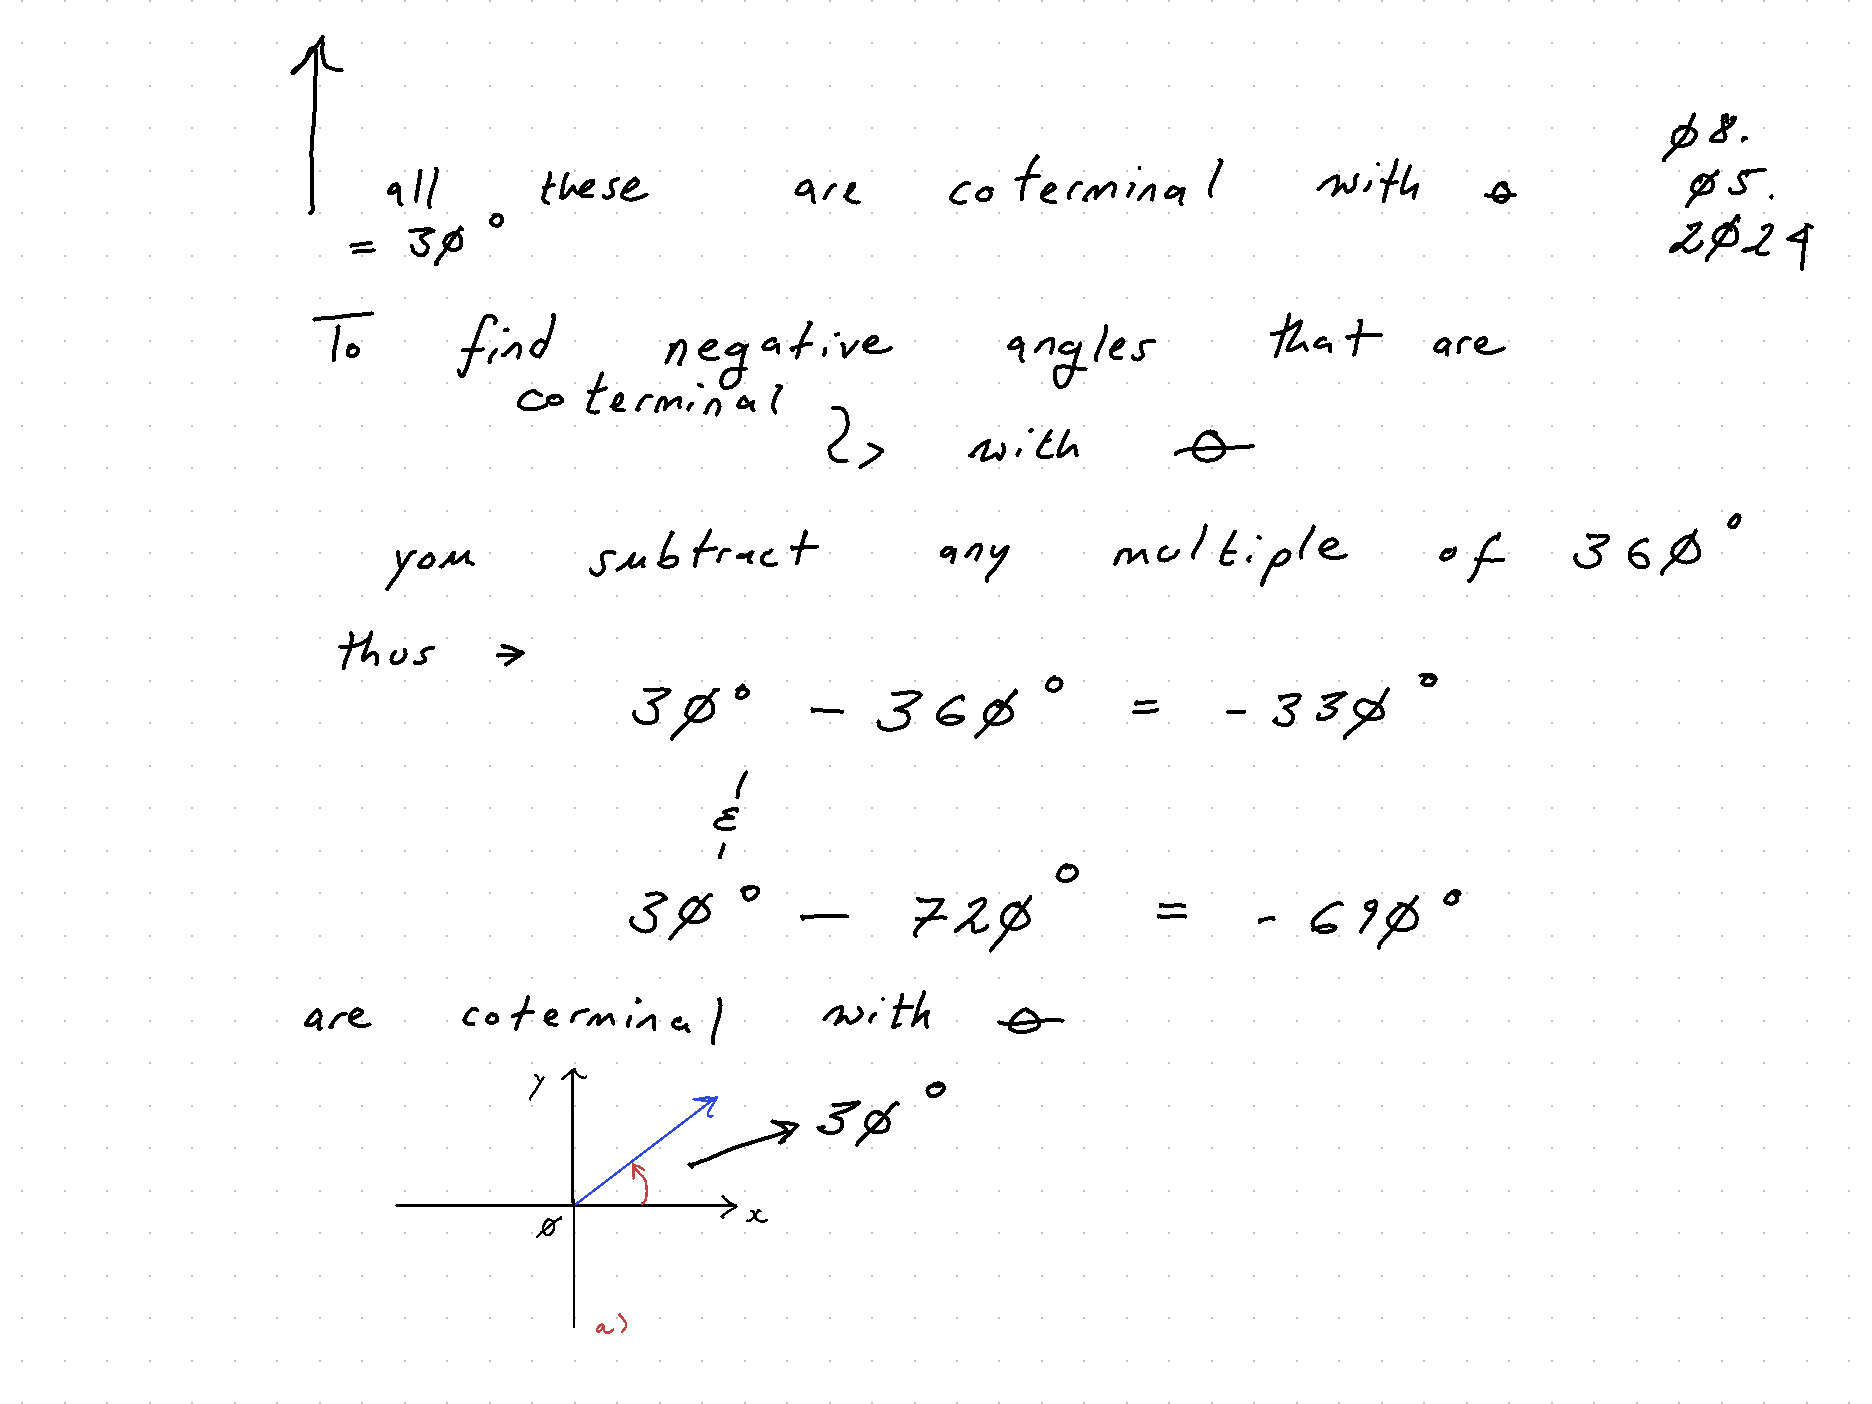 all these are coterminal with θ
= 30°
08.
05.
2024
To find negative angles that are
coterminal
with θ
you subtract any multiple of 360°
thus →
30° - 360° = -330°
&
30° - 720° = -690°
are coterminal with θ
y
30°
x
0
a)